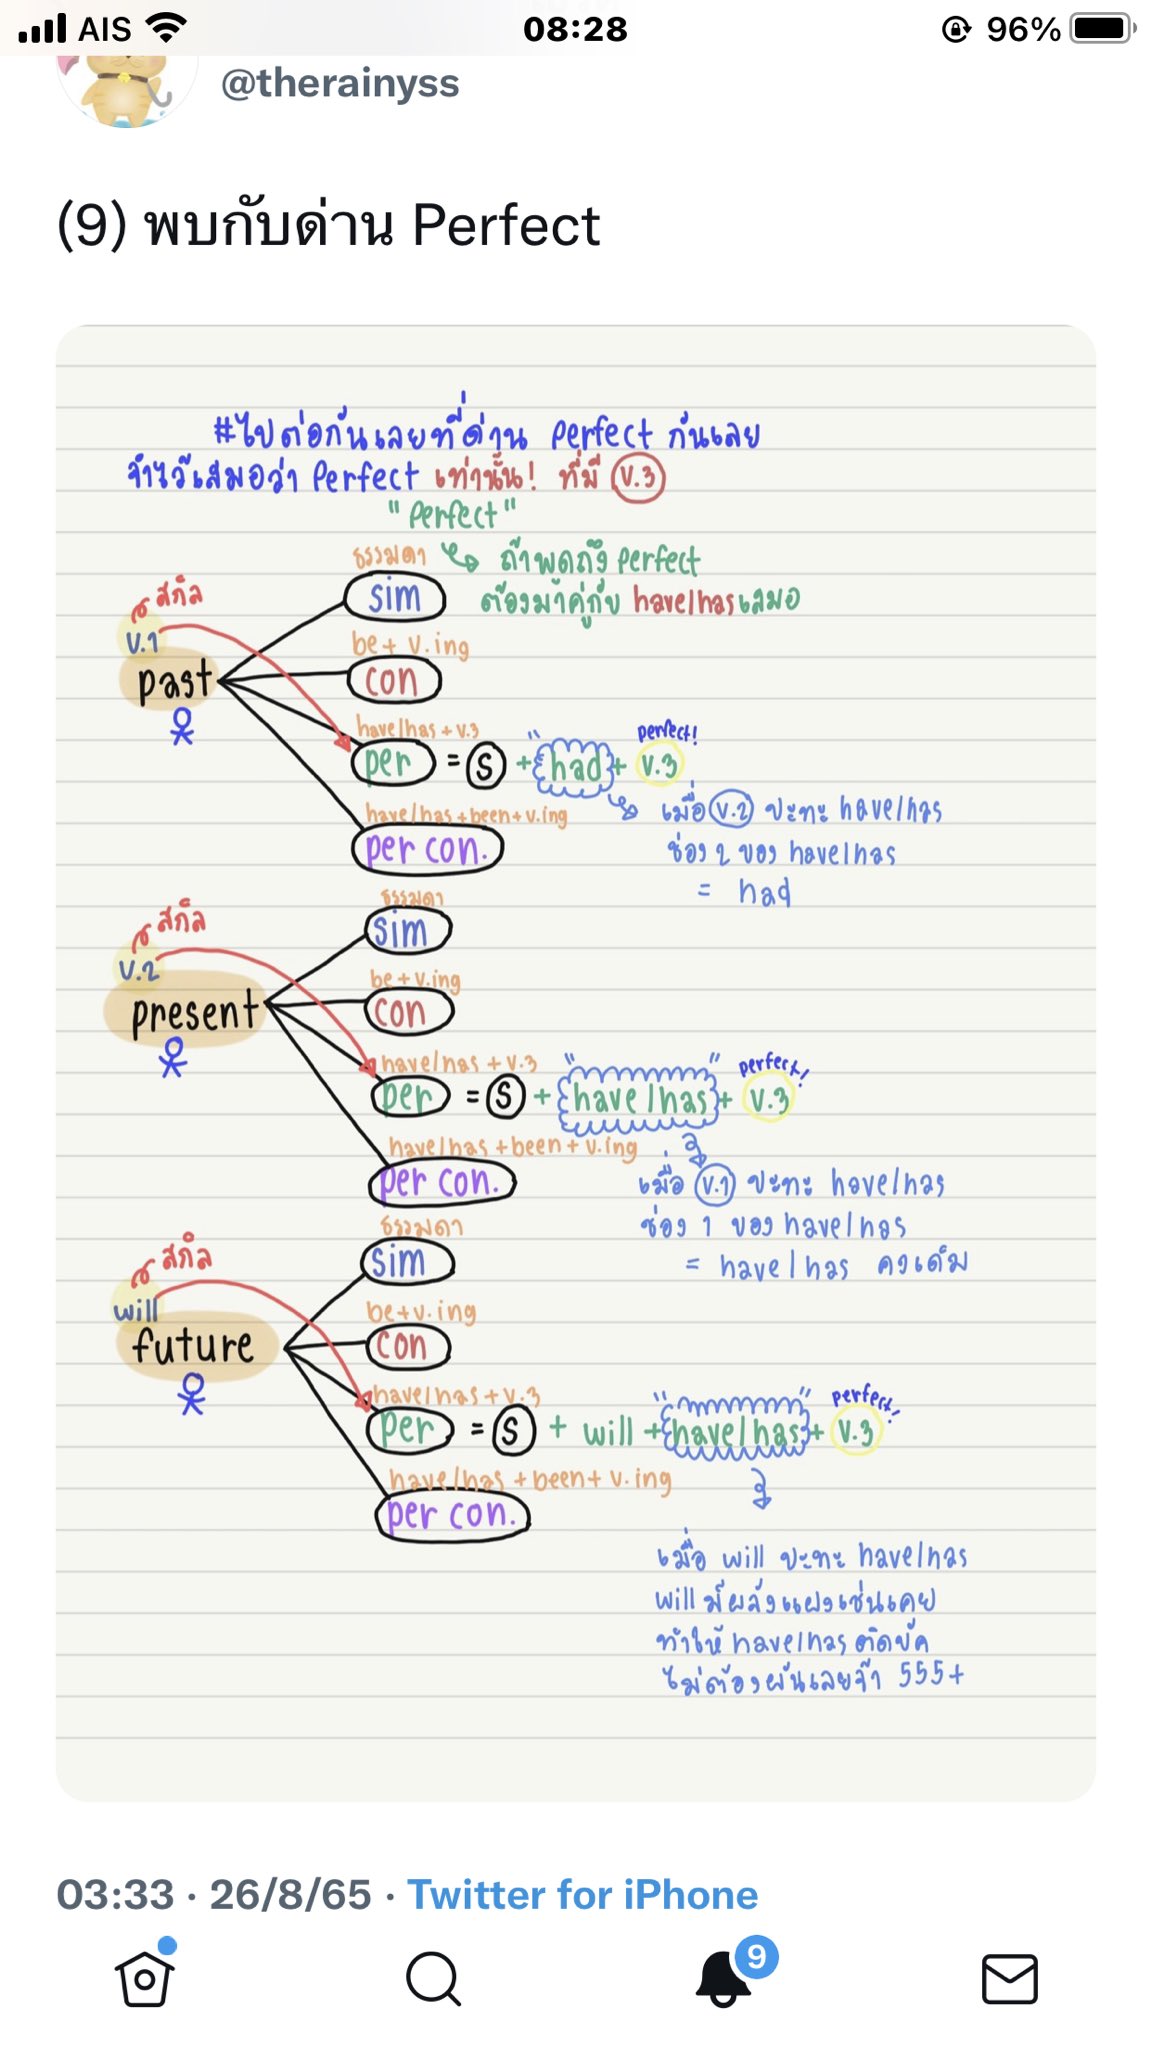 AIS 08:28 96%
@therainyss
(9) พบกับด่าน Perfect
#ไปต่อกันเลยที่ด่าน perfect กันเลย
จำไว้เสมอว่า Perfect เท่านั้น! ที่มี V.3
"Perfect"
ธรรมดา ถ้าพูดถึง perfect
sim ต้องมาคู่กับ have/has เสมอ
สกิล
V.1
be + v.ing
past
con
have/has + v.3 perfect!
per = S + "had + V.3
have/has + been + v.ing เมื่อ V.2 ปะทะ have/has
per con. ช่อง 2 ของ have/has
= had
ธรรมดา
สกิล
sim
V.2
be + v.ing
present
con
have/has + v.3 perfect!
per = S + "have/has" + V.3
have/has + been + v.ing
per con. เมื่อ V.1 ปะทะ have/has
ธรรมดา ช่อง 1 ของ have/has
สกิล
sim = have/has คงเดิม
will
be + v.ing
future
con
have/has + v.3 perfect!
per = S + will + "have/has" + V.3
have/has + been + v.ing
per con.
เมื่อ will ปะทะ have/has
will มีพลังแฝงเช่นเคย
ทำให้ have/has ติดบัค
ไม่ต้องผันเลยจ้า 555+
03:33 · 26/8/65 · Twitter for iPhone
9